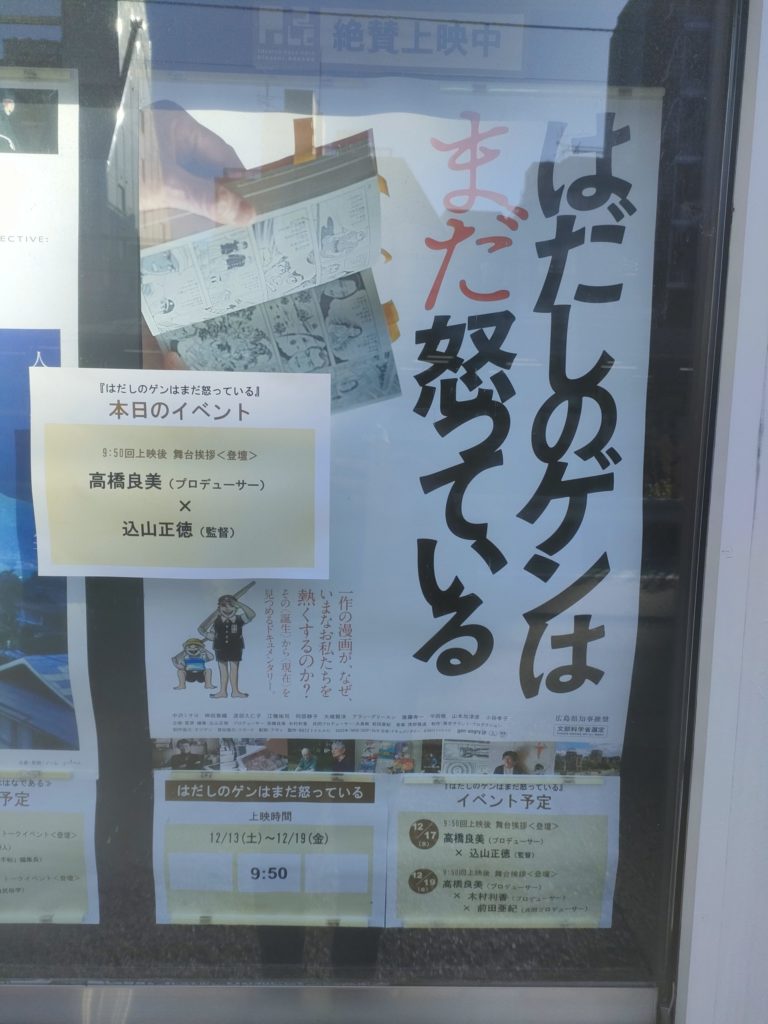 絶賛上映中
はだしのゲンは
まだ怒っている
ECTIVE:
『はだしのゲンはまだ怒っている』
本日のイベント
9:50回上映後 舞台挨拶<登壇>
高橋良美(プロデューサー)
×
込山正徳(監督)
一作の漫画が、なぜ、
いまなお私たちを
熱くするのか?
その〈誕生〉から〈現在〉を
見つめるドキュメンタリー。
広島県知事推奨
文部科学省選定
はだしのゲンはまだ怒っている
上映時間
12/13(土)~12/19(金)
9:50
『はだしのゲンはまだ怒っている』
イベント予定
12/17(水)
9:50回上映後 舞台挨拶<登壇>
高橋良美(プロデューサー)
× 込山正徳(監督)
12/19(金)
9:50回上映後 舞台挨拶<登壇>
高橋良美(プロデューサー)
× 木村利香(プロデューサー)
× 前田亜紀(共同プロデューサー)
予定
トークイベント<登壇>
トークイベント<登壇>